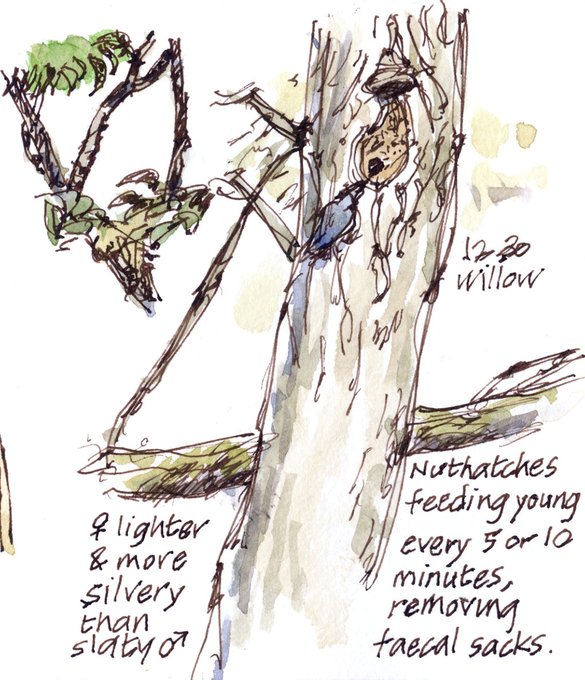 12.30
willow
♀ lighter
& more
silvery
than
slaty ♂
Nuthatches
feeding young
every 5 or 10
minutes,
removing
faecal sacks.